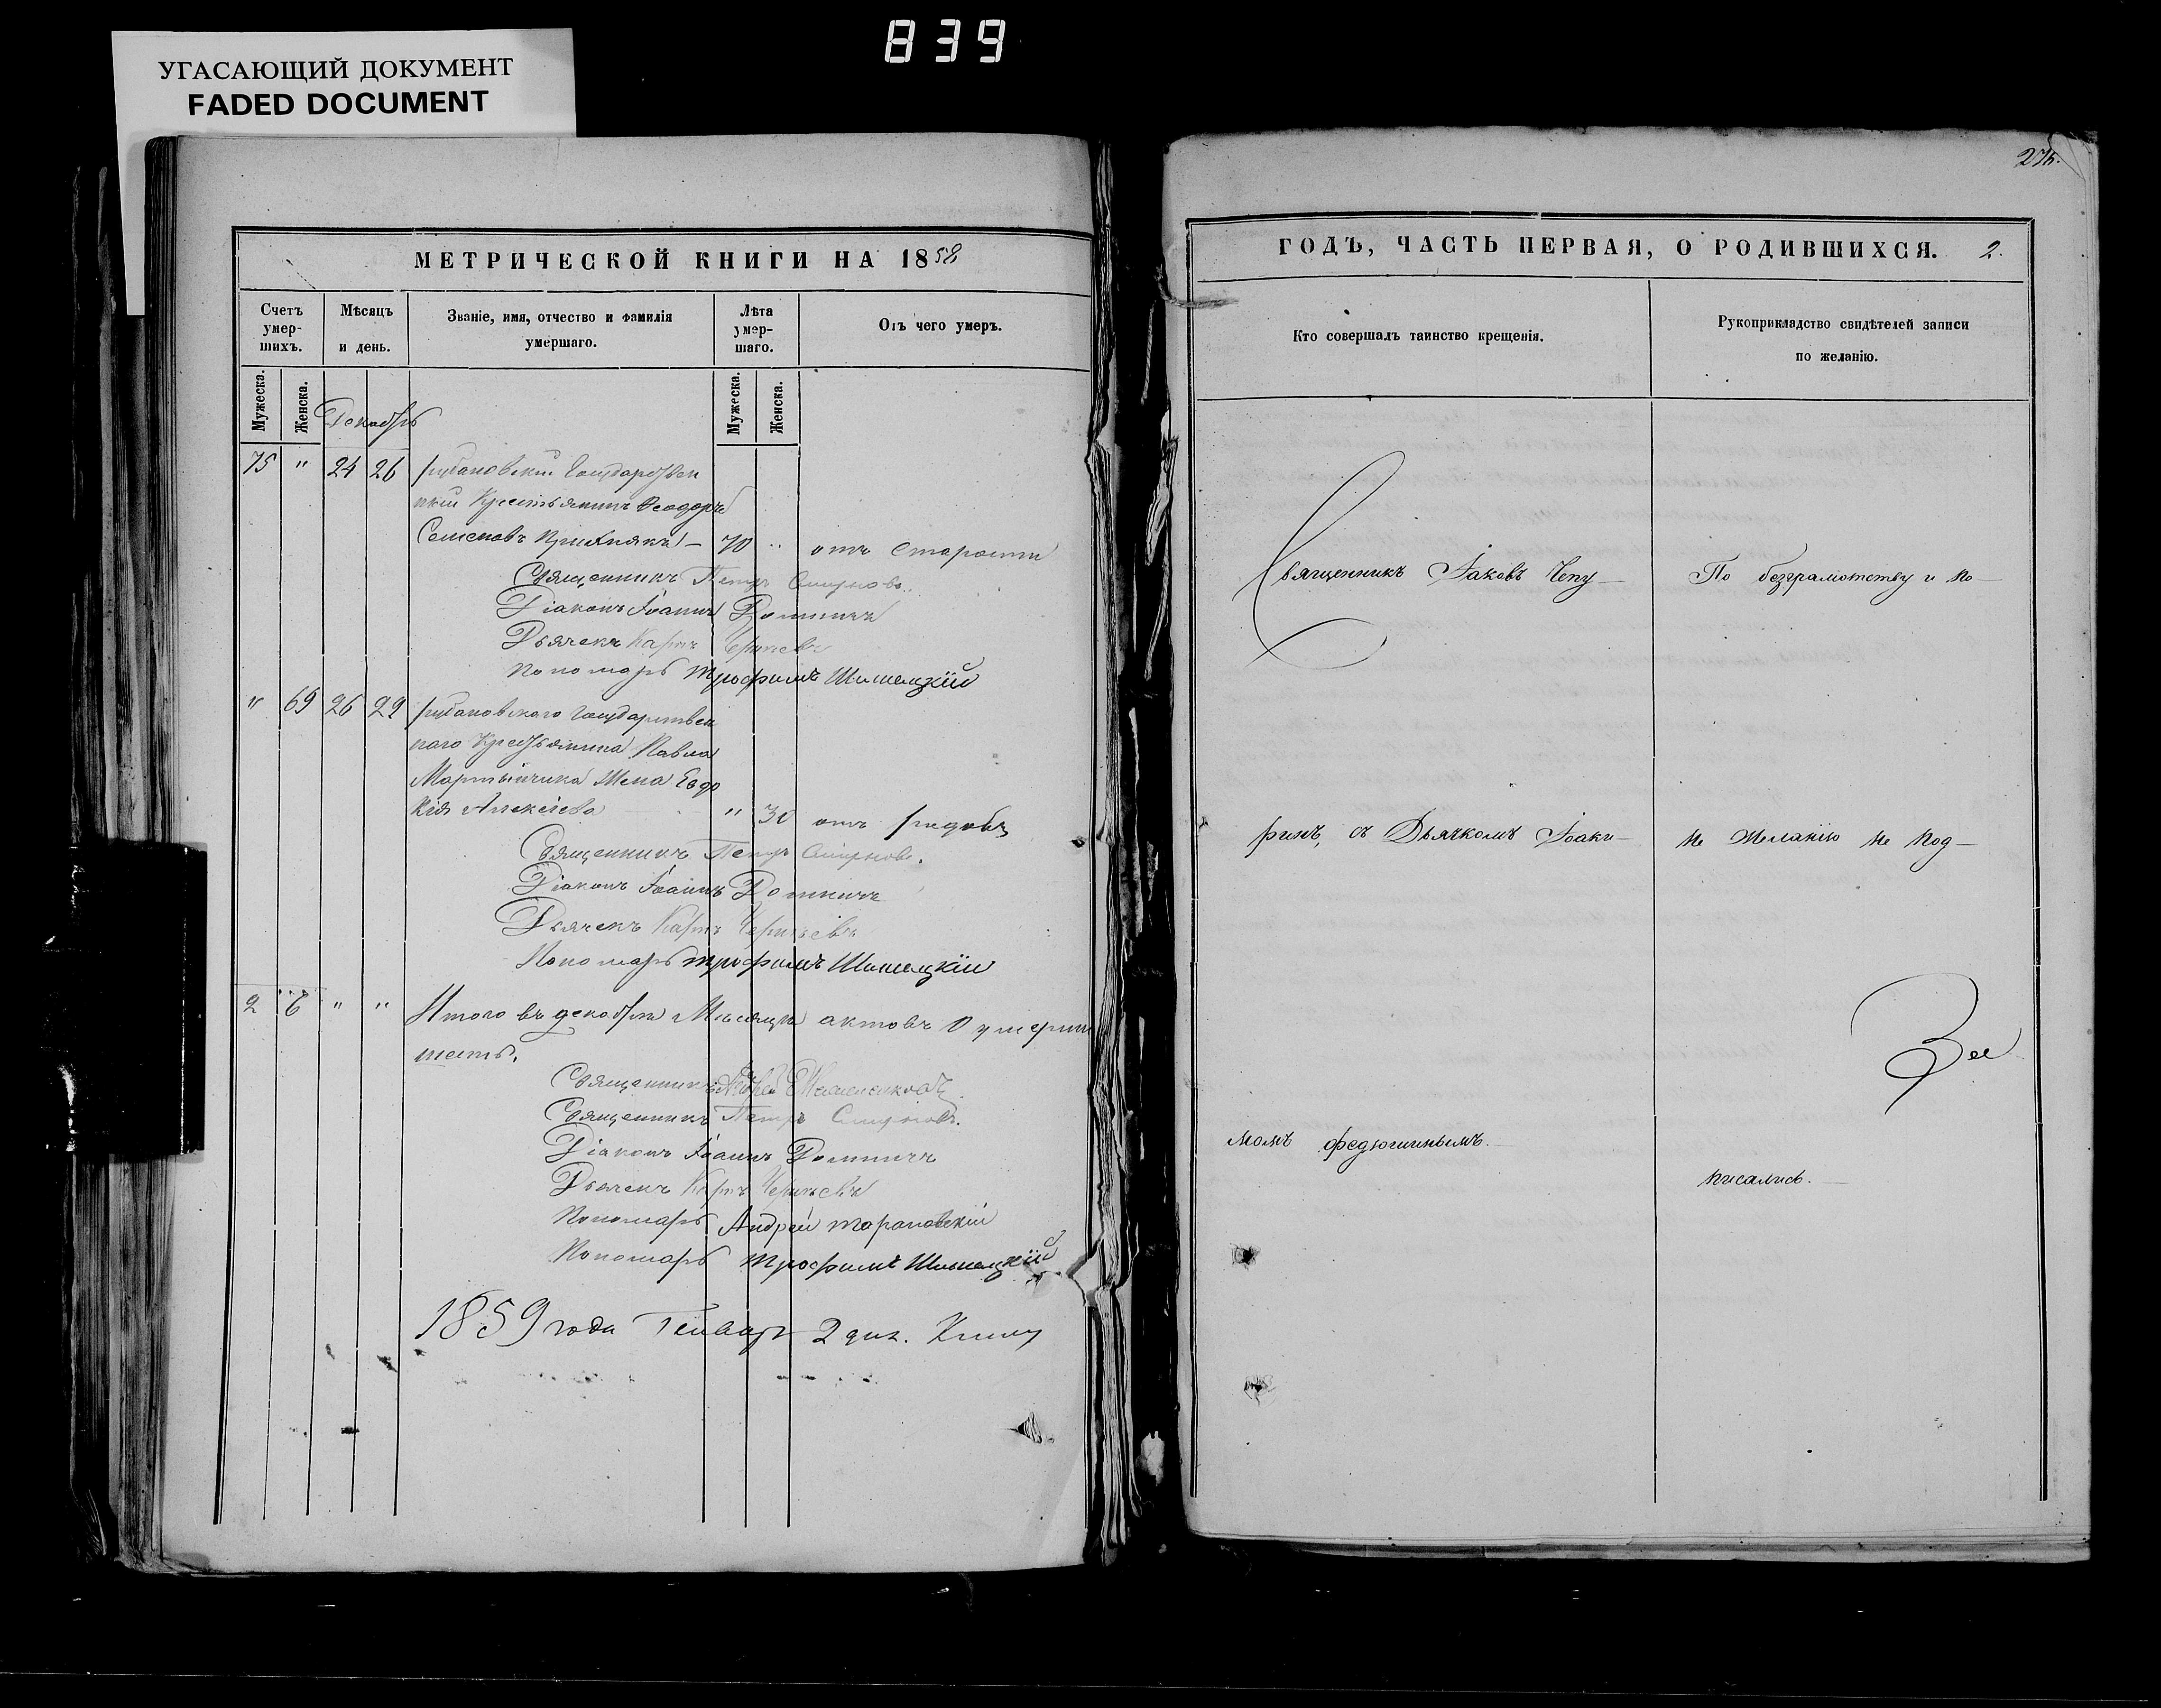 839
УГАСАЮЩИЙ ДОКУМЕНТ
FADED DOCUMENT
МЕТРИЧЕСКОЙ КНИГИ НА 1858
Счетъ умер-шихъ.
Мѣсяцъ и день.
Званіе, имя, отчество и фамилія умершаго.
Лѣта умер-шаго.
Отъ чего умеръ.
Мужеска.
Женска.
Мужеска.
Женска.
Декабрь
75 " 24 26 рубановскій Государствен
ный Крестьянинъ Феодоръ
Семеновъ – 70 " отъ старости
Священникъ Петръ Смирновъ.
Діаконъ Іоаннъ
Дьячекъ Карпъ
Пономарь трофимъ
" 69 26 29 рубановскаго Государствен
наго Крестьянина Павла
Мартынчика Жена Евдо
кія Алексіева " 30 отъ родовъ
Священникъ Петръ Смирновъ.
Діаконъ Іоаннъ
Дьячекъ Карпъ
Пономарь трофимъ
2 6 " " Итого въ декабрѣ Мѣсяцѣ актовъ О умерш
шесть.
Священникъ
Священникъ Петръ Смирновъ.
Діаконъ Іоаннъ
Дьячекъ Карпъ
Пономарь Андрей тарановскій
Пономарь трофимъ
1859 года Генваря 2 дня. Книгу
275.
ГОДЪ, ЧАСТЬ ПЕРВАЯ, О РОДИВШИХСЯ. 2.
Кто совершалъ таинство крещенія.
Рукоприкладство свидѣтелей записи
по желанію.
Священникъ Іаковъ Чепу–
По безграмотству и по–
ринъ, съ Дьячкомъ Іоаки–
не желанію не под–
момъ федюшинымъ.
писались.